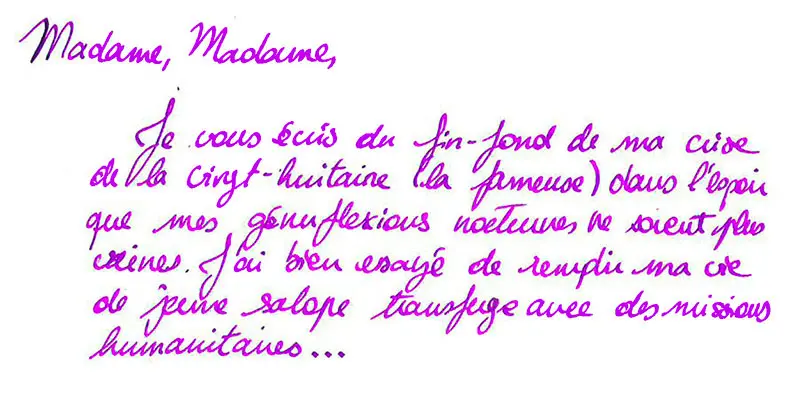 Madame, Madame,
Je vous écris du fin-fond de ma crise
de la vingt-huitaine (la fameuse) dans l'espoir
que mes génuflexions nocturnes ne soient plus
vaines. J'ai bien essayé de remplir ma vie
de jeune salope transfuge avec des missions
humanitaires...